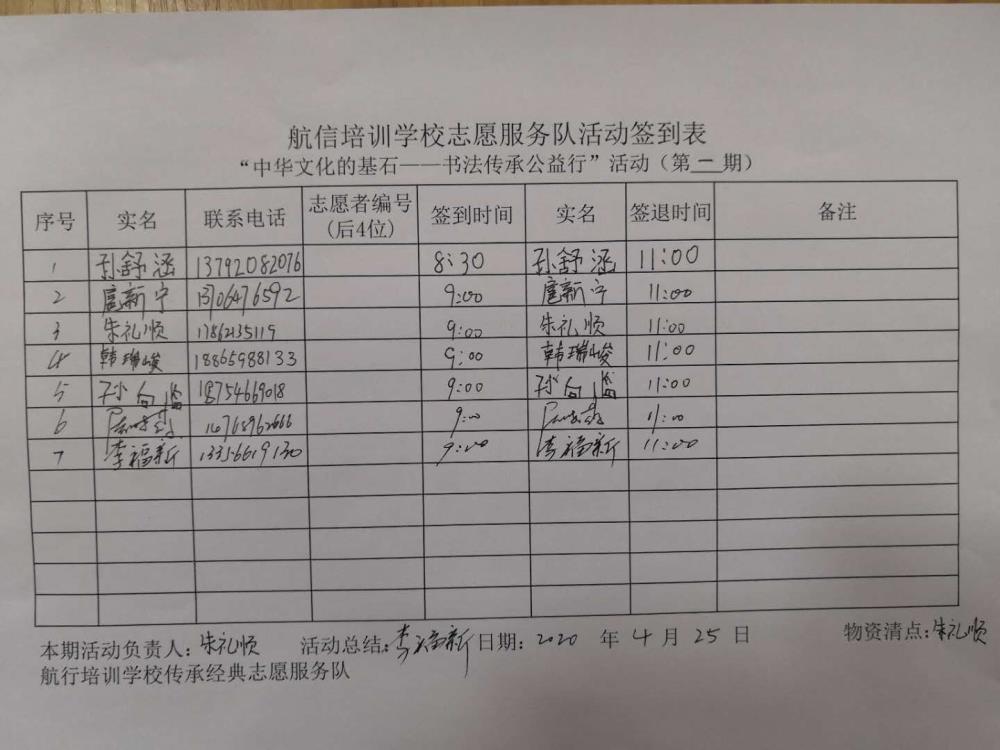 航信培训学校志愿服务队活动签到表
“中华文化的基石——书法传承公益行”活动（第一期）
序号 实名 联系电话 志愿者编号(后4位) 签到时间 实名 签退时间 备注
1 孙舒涵 13792082076 8:30 孙舒涵 11:00
2 扈新宁 13706476592 9:00 扈新宁 11:00
3 朱礼顺 17862135119 9:00 朱礼顺 11:00
4 韩瑞峻 18865988133 9:00 韩瑞峻 11:00
5 孙 18754669018 9:00 孙 11:00
6 9:00 11:00
7 李福新 13356619130 9:00 李福新 11:00
本期活动负责人：朱礼顺 活动总结：李福新 日期：2020 年 4 月 25 日 物资清点：朱礼顺
航行培训学校传承经典志愿服务队